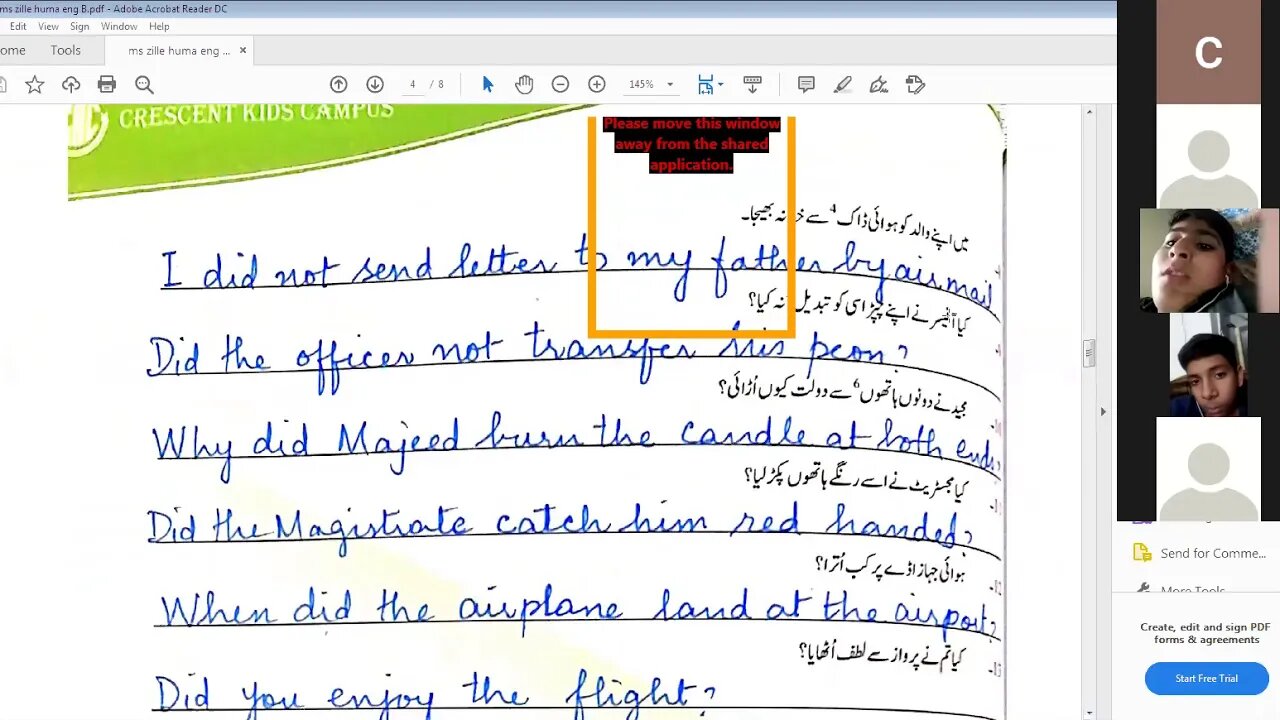 ms zille huma eng B.pdf - Adobe Acrobat Reader DC
Edit View Sign Window Help
ome Tools ms zille huma eng ... ×
4 / 8 145%
CRESCENT KIDS CAMPUS
Please move this window
away from the shared
application.
میں اپنے والد کو ہوائی ڈاک 4 سے خط نہ بھیجا۔
I did not send letter to my father by air mail
کیا آفیسر نے اپنے چپڑاسی کو تبدیل نہ کیا؟
Did the officer not transfer his peon?
مجید نے دونوں ہاتھوں 6 سے دولت کیوں اُڑائی؟
Why did Majeed burn the candle at both ends?
کیا مجسٹریٹ نے اسے رنگے ہاتھوں پکڑ لیا؟
Did the Magistrate catch him red handed?
ہوائی جہاز اڈے پر کب اُترا؟
When did the airplane land at the airport?
کیا تم نے پرواز سے لطف اُٹھایا؟
Did you enjoy the flight?
C
Send for Comme...
More Tools
Create, edit and sign PDF
forms & agreements
Start Free Trial